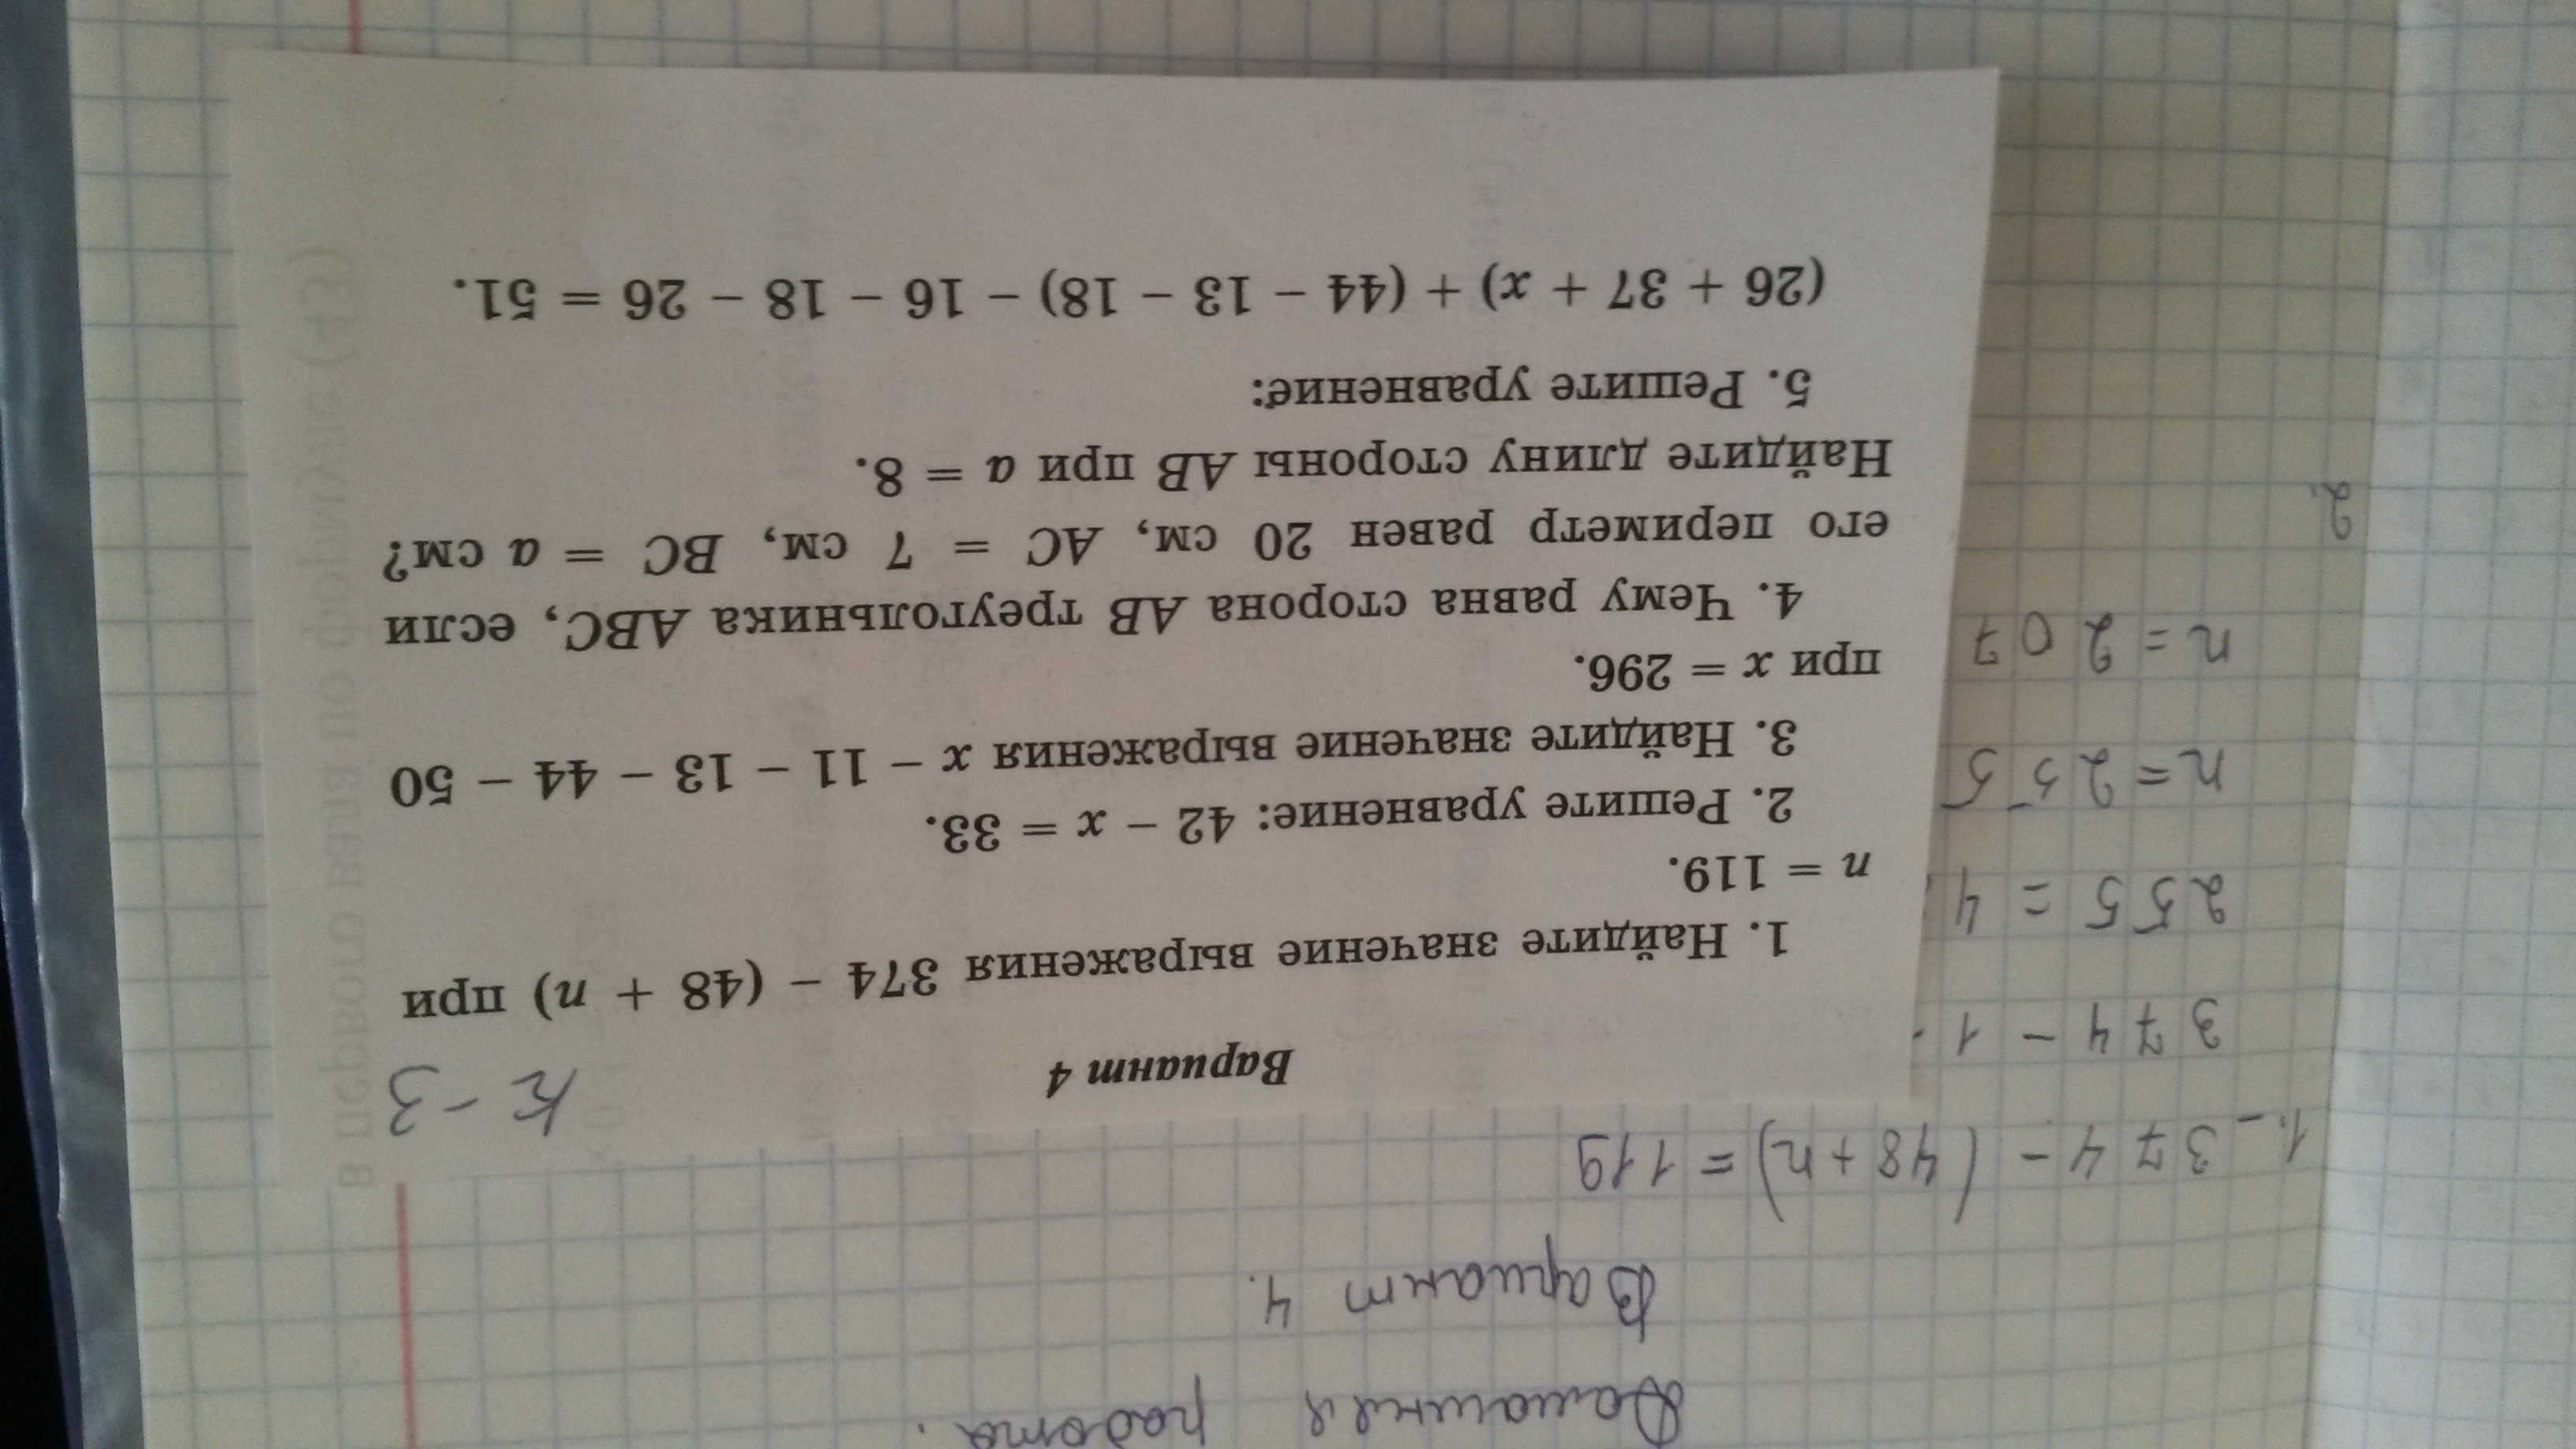 Домашняя работа.
Вариант 4.
1. 374 - (48 + n) = 119
374 - 1
255 = 4
n = 255
n = 207
2.
к-3
Вариант 4
1. Найдите значение выражения 374 – (48 + n) при
n = 119.
2. Решите уравнение: 42 – x = 33.
3. Найдите значение выражения x – 11 – 13 – 44 – 50
при x = 296.
4. Чему равна сторона AB треугольника ABC, если
его периметр равен 20 см, AC = 7 см, BC = a см?
Найдите длину стороны AB при a = 8.
5. Решите уравнение:
(26 + 37 + x) + (44 – 13 – 18) – 16 – 18 – 26 = 51.